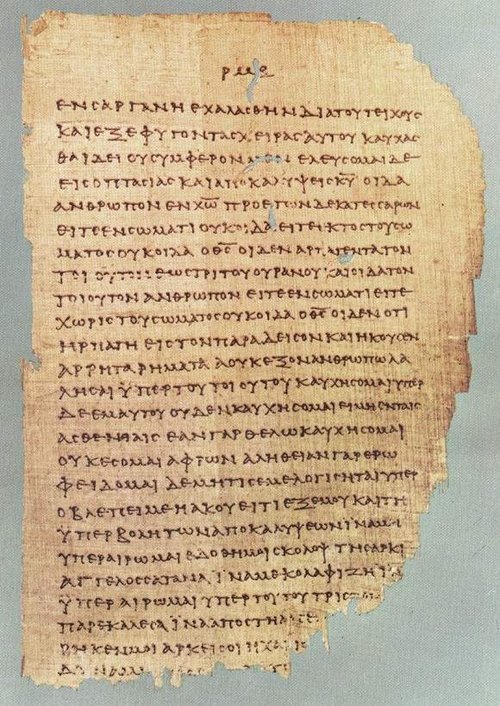 ΕΝ ΣΑΡΓΑΝΗ ΕΧΑΛΑΣΘΗΝ ΔΙΑ ΤΟΥ ΤΕΙΧΟΥΣ
ΚΑΙ ΕΞΕΦΥΓΟΝ ΤΑΣ ΧΕΙΡΑΣ ΑΥΤΟΥ ΚΑΥΧΑΣ
ΘΑΙ ΔΕΙ ΟΥ ΣΥΜΦΕΡΟΝ ΕΛΕΥΣΟΜΑΙ ΔΕ
ΕΙΣ ΟΠΤΑΣΙΑΣ ΚΑΙ ΑΠΟΚΑΛΥΨΕΙΣ Κ̅Υ̅ ΟΙΔΑ
ΑΝΘΡΩΠΟΝ ΕΝ Χ̅Ω̅ ΠΡΟ ΕΤΩΝ ΔΕΚΑΤΕΣΣΑΡΩΝ
ΕΙΤΕ ΕΝ ΣΩΜΑΤΙ ΟΥΚ ΟΙΔΑ ΕΙΤΕ ΕΚΤΟΣ ΤΟΥ ΣΩ
ΜΑΤΟΣ ΟΥΚ ΟΙΔΑ Ο Θ̅Σ̅ ΟΙΔΕΝ ΑΡΠΑΓΕΝΤΑ ΤΟΝ
ΤΟΙΟΥΤΟΝ ΕΩΣ ΤΡΙΤΟΥ ΟΥΡΑΝΟΥ ΚΑΙ ΟΙΔΑ ΤΟΝ
ΤΟΙΟΥΤΟΝ ΑΝΘΡΩΠΟΝ ΕΙΤΕ ΕΝ ΣΩΜΑΤΙ ΕΙΤΕ
ΧΩΡΙΣ ΤΟΥ ΣΩΜΑΤΟΣ ΟΥΚ ΟΙΔΑ Ο Θ̅Σ̅ ΟΙΔΕΝ ΟΤΙ
ΗΡΠΑΓΗ ΕΙΣ ΤΟΝ ΠΑΡΑΔΕΙΣΟΝ ΚΑΙ ΗΚΟΥΣΕΝ
ΑΡΡΗΤΑ ΡΗΜΑΤΑ Α ΟΥΚ ΕΞΟΝ ΑΝΘΡΩΠΩ ΛΑ
ΛΗΣΑΙ ΫΠΕΡ ΤΟΥ ΤΟΙΟΥΤΟΥ ΚΑΥΧΗΣΟΜΑΙ ΥΠΕΡ
ΔΕ ΕΜΑΥΤΟΥ ΟΥΔΕΝ ΚΑΥΧΗΣΟΜΑΙ ΕΙ ΜΗ ΕΝ ΤΑΙΣ
ΑΣΘΕΝΕΙΑΙΣ ΕΑΝ ΓΑΡ ΘΕΛΩ ΚΑΥΧΗΣΟΜΑΙ
ΟΥΚ ΕΣΟΜΑΙ ΑΦΡΩΝ ΑΛΗΘΕΙΑΝ ΓΑΡ ΕΡΩ
ΦΕΙΔΟΜΑΙ ΔΕ ΜΗ ΤΙΣ ΕΜΕ ΛΟΓΙΣΗΤΑΙ ΥΠΕΡ
Ο ΒΛΕΠΕΙ ΜΕ Η ΑΚΟΥΕΙ ΤΙ ΕΞ ΕΜΟΥ ΚΑΙ ΤΗ
ΫΠΕΡΒΟΛΗ ΤΩΝ ΑΠΟΚΑΛΥΨΕΩΝ ΪΝΑ ΜΗ
ΫΠΕΡΑΙΡΩΜΑΙ ΕΔΟΘΗ ΜΟΙ ΣΚΟΛΟΨ ΤΗ ΣΑΡΚΙ
ΑΓΓΕΛΟΣ ΣΑΤΑΝΑ ΪΝΑ ΜΕ ΚΟΛΑΦΙΖΗ ΪΝΑ
ΫΠΕΡΑΙΡΩΜΑΙ ΥΠΕΡ ΤΟΥΤΟΥ ΤΡΙΣ
ΠΑΡΕΚΑΛΕΣΑ ΪΝΑ ΑΠΟΣΤΗ
ΚΕΝ ΜΟΙ ΑΡΚΕΙ ΣΟΙ Η ΧΑΡΙΣ